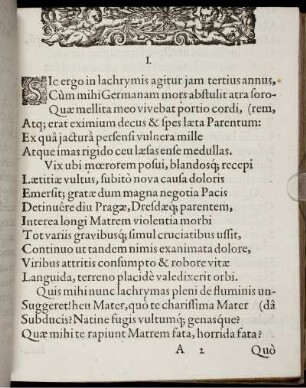 I.
SIc ergo in lachrymis agitur jam tertius annus,
Cùm mihi Germanam mors abstulit atra soro-
Quæ mellita meo vivebat portio cordi, (rem,
Atq; erat eximium decus & spes læta Parentum:
Ex quâ jacturâ persensi vulnera mille
Atque imas rigido ceu læsas ense medullas.
Vix ubi mœrorem posui, blandosq; recepi
Lætitiæ vultus, subitò nova causa doloris
Emersit; gratæ dum magna negotia Pacis
Detinuêre diu Pragæ, Dresdæq; parentem,
Interea longi Matrem violentia morbi
Tot variis gravibusq; simul cruciatibus ussit,
Continuo ut tandem nimis exanimata dolore,
Viribus attritis consumpto & robore vitæ
Languida, terreno placidè valedixerit orbi.
Quis mihi nunc lachrymas pleni de fluminis un-
Suggeret? heu Mater, quò te charissima Mater (dâ
Subducis? Natine fugis vultumq; genasque?
Quæ mihi te rapiunt Matrem fata, horrida fata?
A 2 Quò